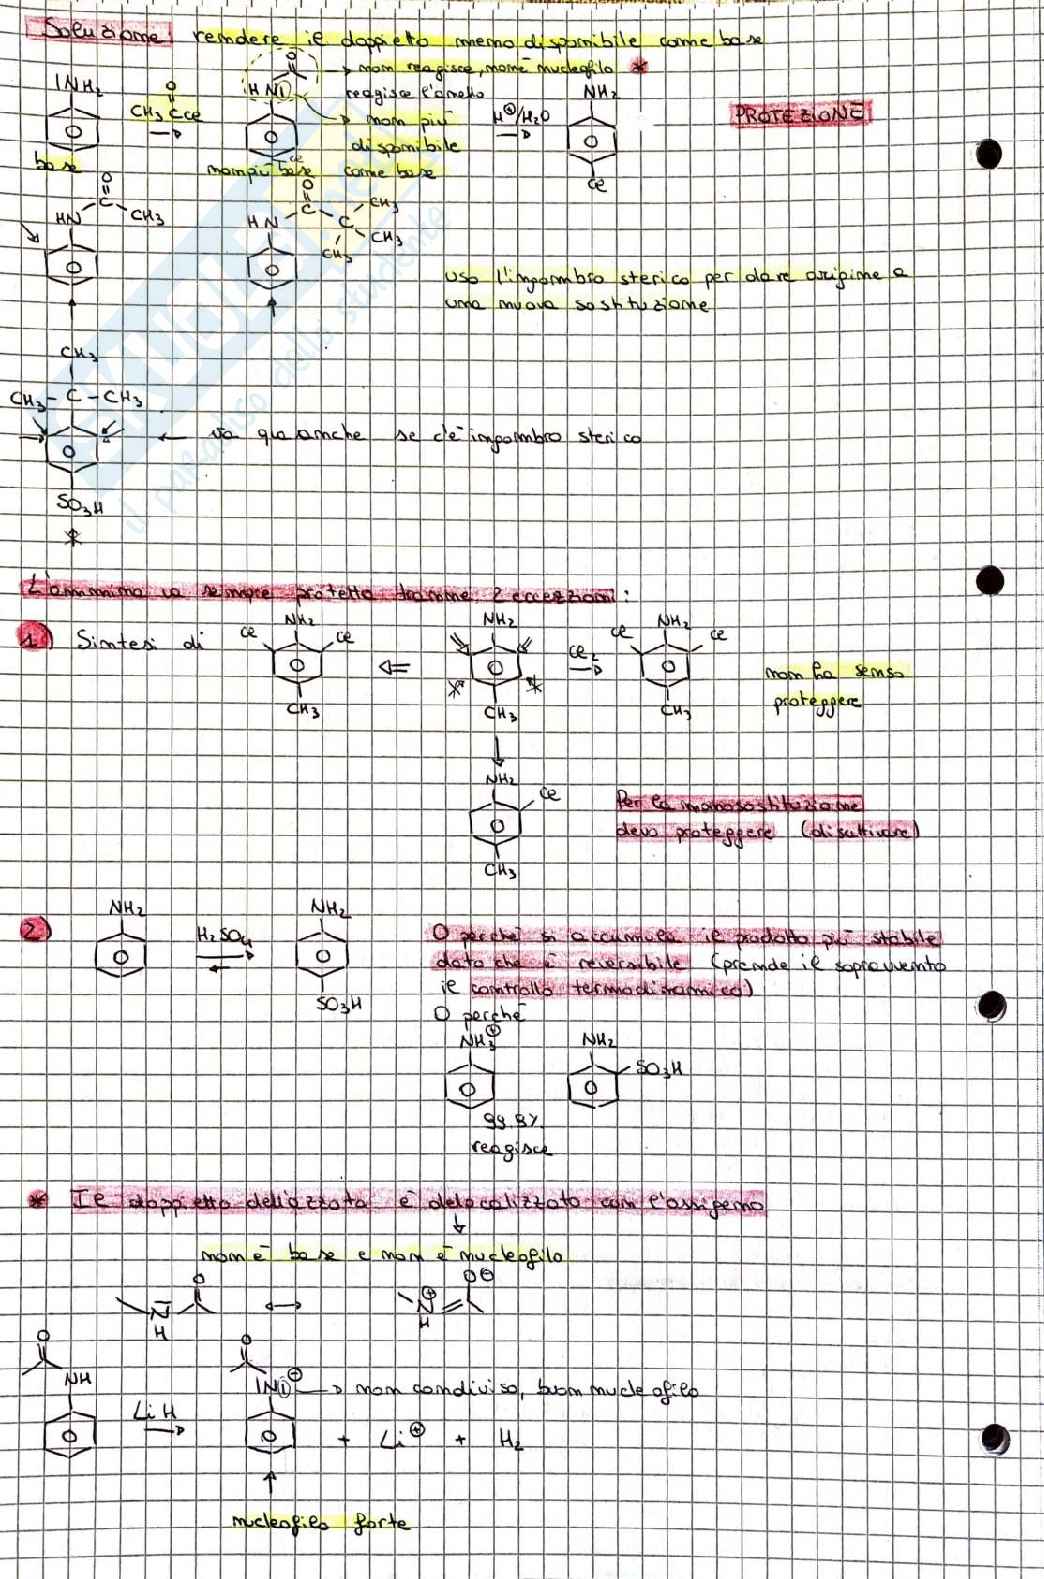 Soluzione: rendere il doppietto meno disponibile come base
→ non reagisce, non è nucleofilo *
reagisce l'anello
→ non più
disponibile
come base
|NH2
CH3CCl
O
HN|
H⊕/H2O
NH2
Cl
PROTEZIONE
base
non più base
Cl
O
C
CH3
HN
O
C
C
CH3
CH3
CH3
HN
uso l'ingombro sterico per dare origine a
una nuova sostituzione
CH3
CH3-C-CH3
← va qua anche se c'è ingombro sterico
SO3H
*
L'ammina va sempre protetta tranne 2 eccezioni:
1) Sintesi di
Cl NH2 Cl
CH3
NH2
* *
CH3
Cl2
Cl NH2 Cl
CH3
non ha senso
proteggere
NH2
Cl
CH3
Per la monosostituzione
devo proteggere (disattivare)
2)
NH2
H2SO4
NH2
SO3H
O perché si accumula il prodotto più stabile
dato che è reversibile (prende il sopravvento
il controllo termodinamico)
O perché
NH3⊕
NH2
SO3H
99.8%
reagisce
* Il doppietto dell'azzoto è delocalizzato con l'ossigeno
↓
non è base e non è nucleofilo
O
N
H
↔
O⊖
⊕
N
H
O
NH
LiH
O
|N|⊕ → non condiviso, buon nucleofilo
+ Li⊕ + H2
↑
nucleofilo forte